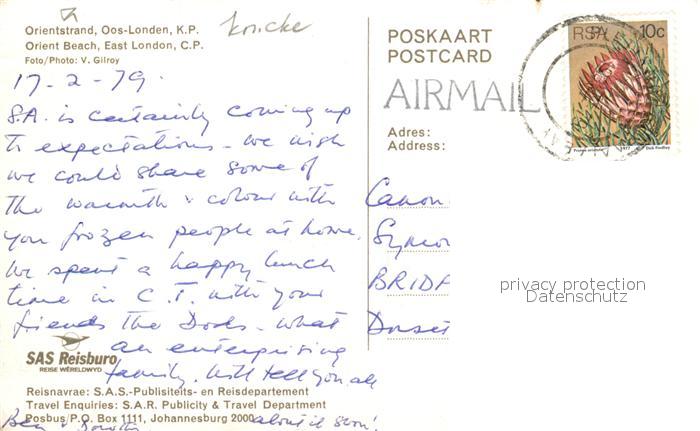 Orientstrand, Oos-Londen, K.P.
Orient Beach, East London, C.P.
Foto/Photo: V. Gilroy
17-2-79.
S.A. is certainly coming up
to expectations - we wish
we could share some of
the warmth & colour with
you frozen people at home.
We spent a happy lunch
time in C.T. with your
friends the Dods - what
an enterprising
family. Will tell you all
about it soon!
Ben &
SAS Reisburo
REISE WÊRELDWYD
Reisnavrae: S.A.S.-Publisiteits- en Reisdepartement
Travel Enquiries: S.A.R. Publicity & Travel Department
Posbus/P.O. Box 1111, Johannesburg 2000
POSKAART
POSTCARD
AIRMAIL
Adres:
Address:
Canon
BRIDP
Dorset
RSA 10c
1977
Dick Findlay
privacy protection
Datenschutz